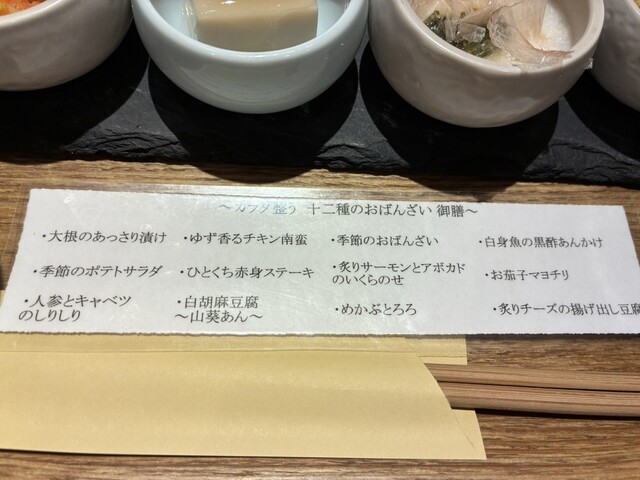 ～カラダ整う 十二種のおばんざい 御膳～
・大根のあっさり漬け ・ゆず香るチキン南蛮 ・季節のおばんざい ・白身魚の黒酢あんかけ
・季節のポテトサラダ ・ひとくち赤身ステーキ ・炙りサーモンとアボカド
のいくらのせ ・お茄子マヨチリ
・人参とキャベツ
のしりしり ・白胡麻豆腐
～山葵あん～ ・めかぶとろろ ・炙りチーズの揚げ出し豆腐